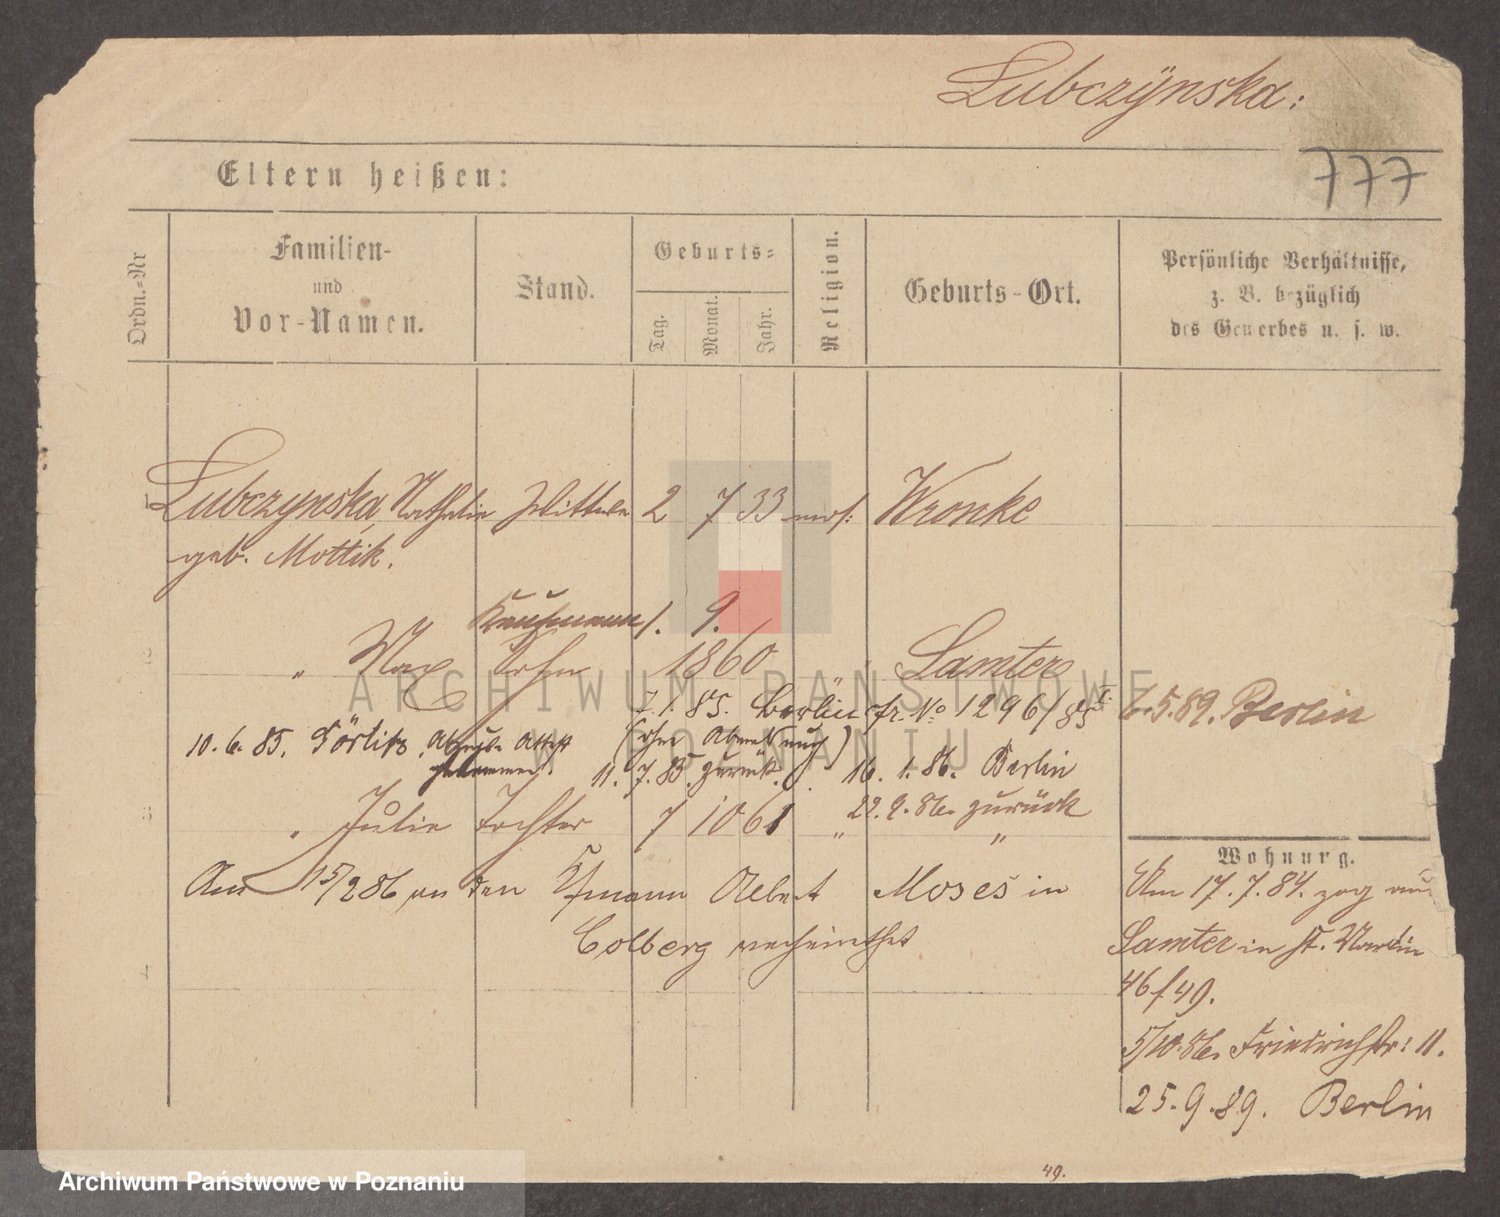 Lubczÿnska:
777
Eltern heißen:
Ordn.-Nr
Familien-
und
Vor-Namen.
Stand.
Geburts-
Tag.
Monat.
Jahr.
Religion.
Geburts-Ort.
Persönliche Verhältnisse,
z. B. bezüglich
des Gewerbes u. s. w.
Lubczynska, Nathalie Wittwe 2 7 33 mos: Wronke
geb. Mottik.
Kaufmann 1. 9.
" Max Sohn 1860 " Samter
ARCHIWUM PAŃSTWOWE
W POZNANIU
7.1.85. Berlin fr. No 1296/85
6.5.89. Berlin
10.6.85. Görlitz. Attest (ohne Abmeldung)
11.7.85. zurück. 16.1.86. Berlin
22.9.86. zurück
" Julie Tochter 7 10 61 " "
Am 15/2 86 an den Kfmann Albert Moses in
Colberg verheirathet
Wohnung.
Am 17.7.84. zog aus
Samter in St. Martin
46/49.
5/10.86. Friedrichstr: 11.
25.9.89. Berlin
49.
Archiwum Państwowe w Poznaniu